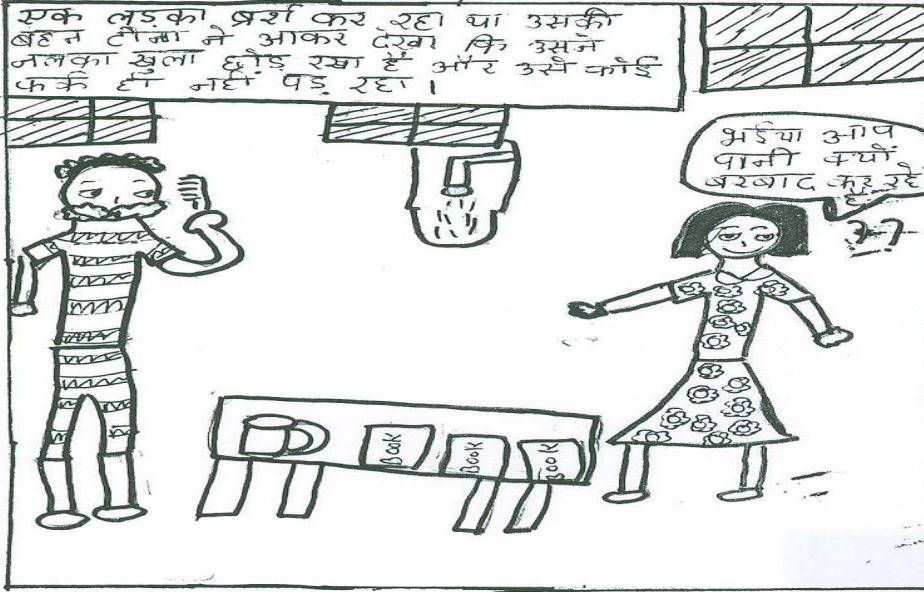 एक लड़का ब्रश कर रहा था उसकी
बहन टीना ने आकर देखा कि उसने
नलका खुला छोड़ रखा है और उसे कोई
फर्क ही नहीं पड़ रहा।
भईया आप
पानी क्यों
बरबाद कर रहे
है
Book
Book
Book